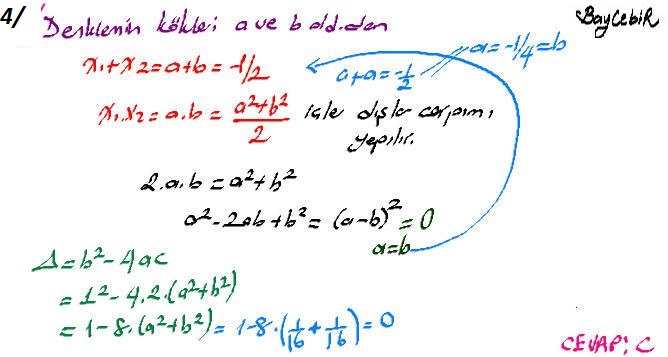 4/ Denklemin kökleri a ve b old.dan
BayCebiR
x₁+x₂=a+b=-1/2
a+a=-1/2 // a=-1/4=b
x₁.x₂=a.b=(a²+b²)/2 içler dışlar çarpımı
yapılır.
2.a.b=a²+b²
a²-2ab+b²=(a-b)²=0
a=b
Δ=b²-4ac
=1²-4.2.(a²+b²)
=1-8.(a²+b²)=1-8.(1/16+1/16)=0
CEVAP: C